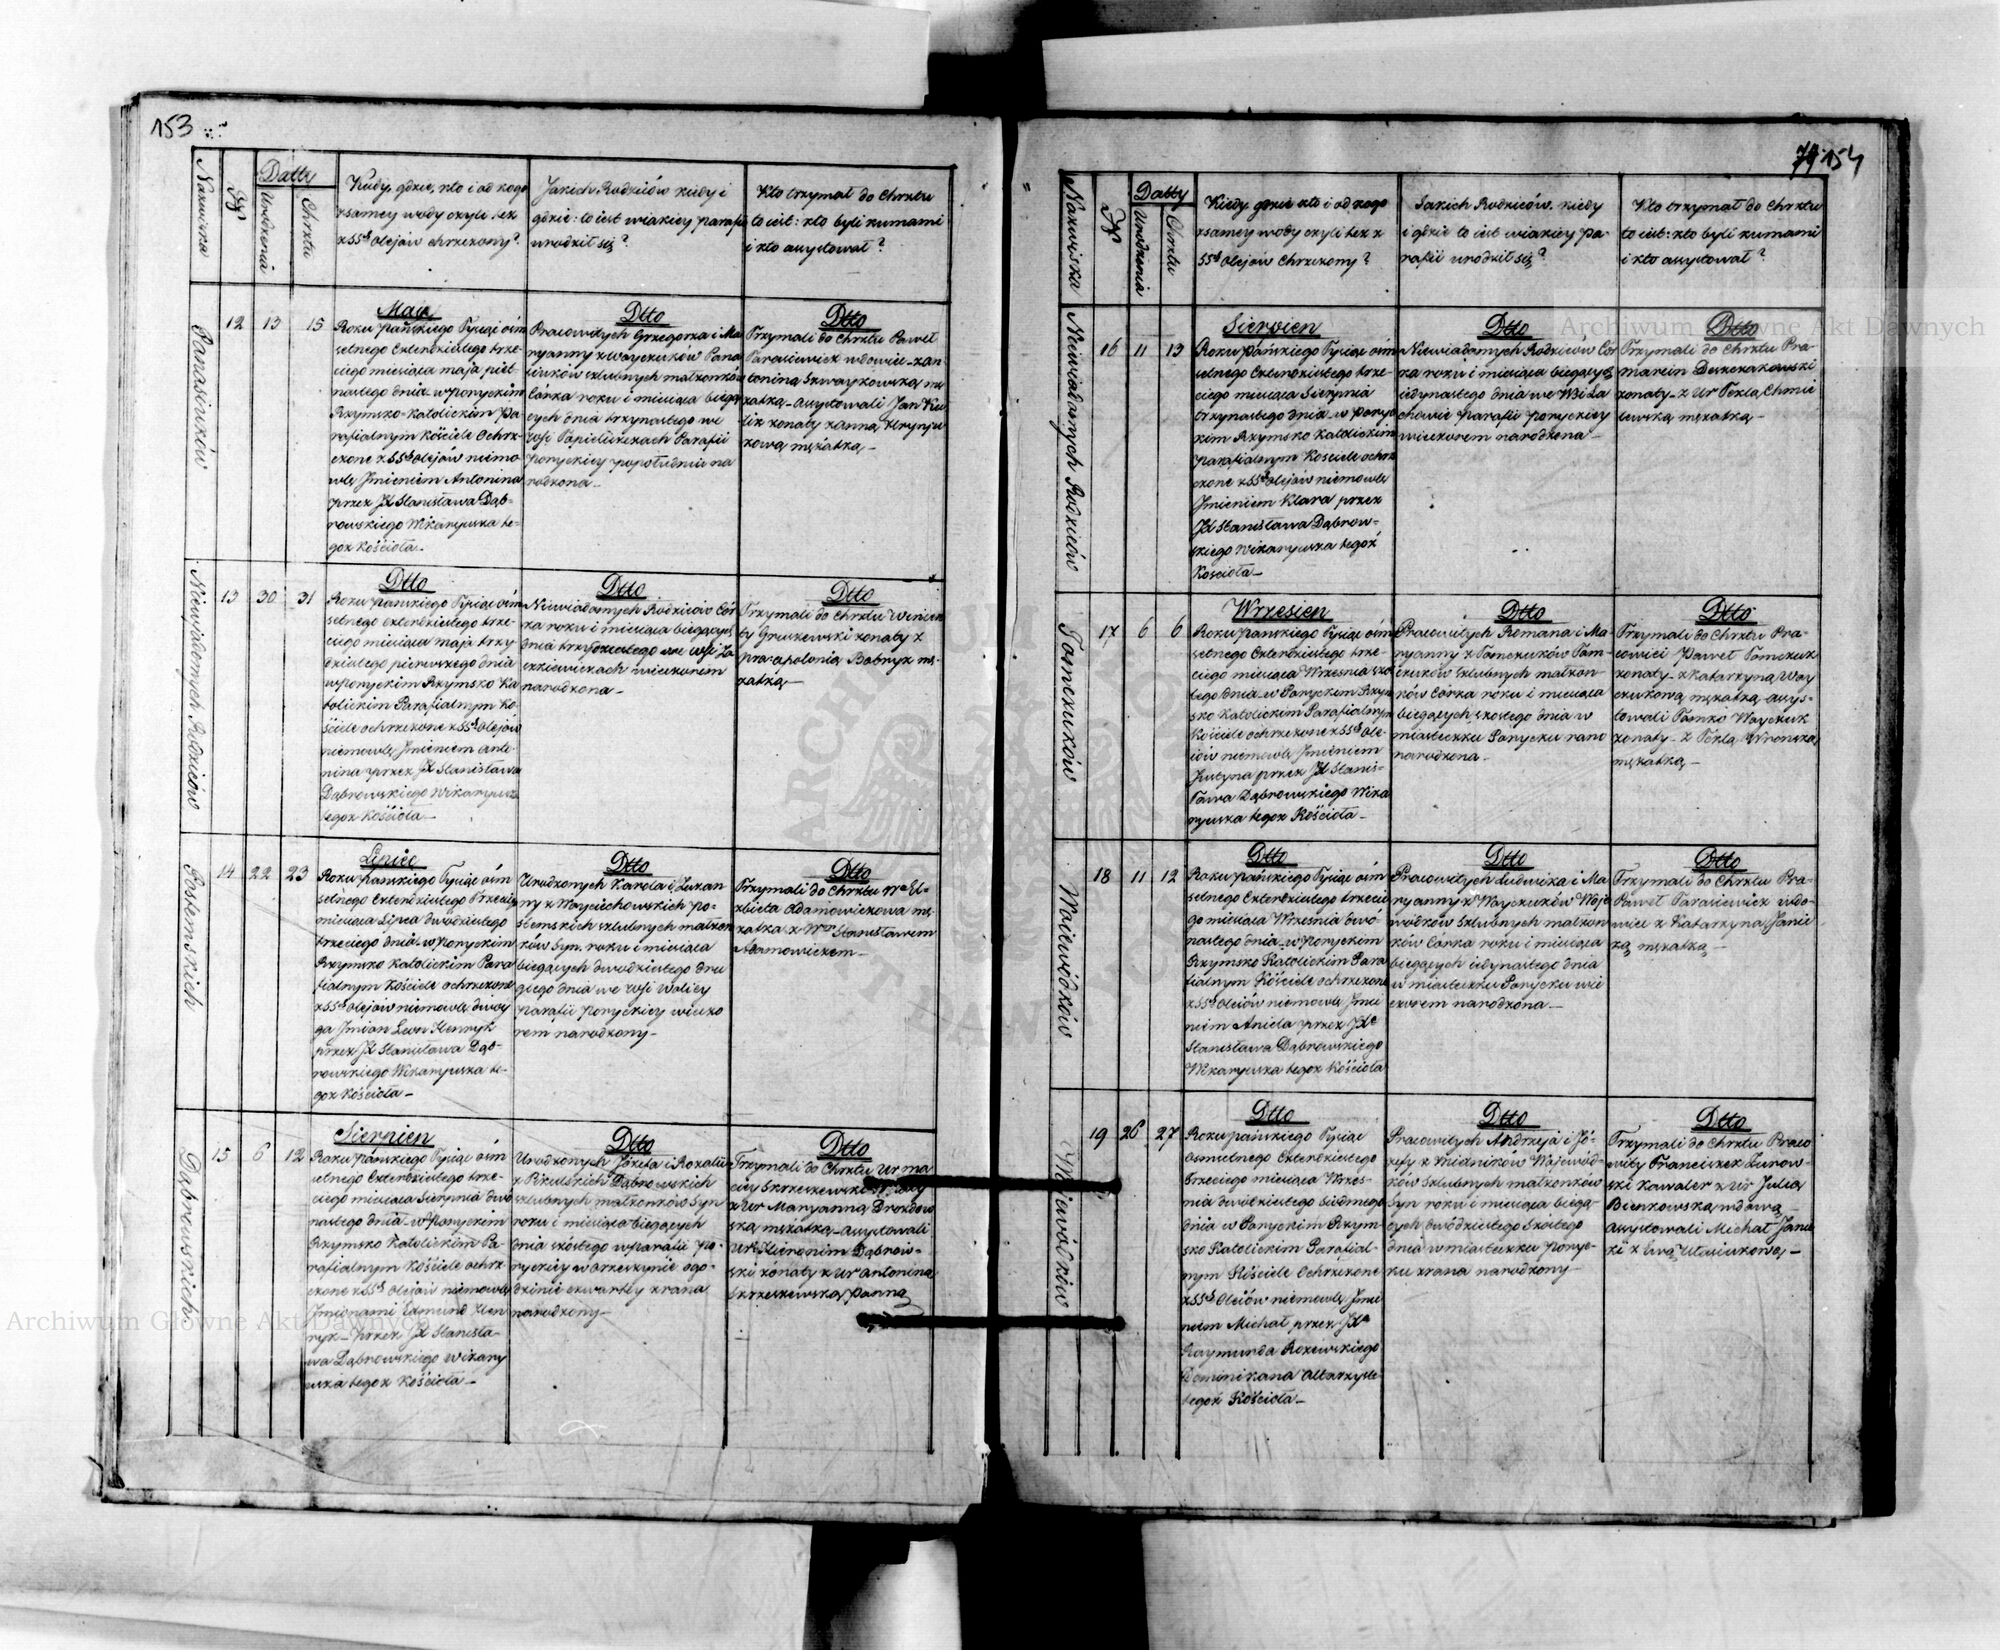 153
Nazwiska
№
Datty
Urodzenia
Chrztu
Kiedy, gdzie, kto i od kogo
z samey wody czyli też
z SSch Olejów chrzczony?
Jakich Rodziców kiedy i
gdzie: to iest w iakiey parafii
urodził się?
Kto trzymał do Chrztu
to iest: kto byli kumami
i kto asystował?
Panasiuków
12
13
15
May
Roku pańskiego Tysiąc ośm
setnego Czterdziestego trze-
ciego miesiąca maja piet-
nastego dnia w poryckim
Rzymsko-Katolickim Pa-
rafialnym Kościele Ochrz-
czone z SSch Olejów niemo-
wle Imieniem Antonina
przez JX Stanisława Dąb-
rowskiego Wikaryusza te-
goż Kościoła
Dtto
Pracowitych Grzegorza i Ma
ryanny z Wayczuków Pana
siuków szlubnych małżonków
Córka roku i miesiąca bieżą
cych dnia trzynastego we
wsi Papieliczkach Parafii
poryckiey popołudniu na
rodzona
Dtto
Trzymali do Chrztu Paweł
Parasiewicz wdowiec z An
toniną Szwaykowską mę
żatką - Asystowali Jan Ku
lik żonaty z Anną
kową mężatką
Niewiadomych Rodziców
13
30
31
Dtto
Roku pańskiego Tysiąc ośm
setnego czterdziestego trze-
ciego miesiąca maja trzy
dziestego pierwszego dnia
w poryckim Rzymsko Ka
tolickim Parafialnym Ko-
ściele ochrzczone z SSch Olejów
niemowle Imieniem Anto-
nina przez JX Stanisława
Dąbrowskiego Wikaryusza
tegoż Kościoła
Dtto
Niewiadomych Rodziców Cór
ka roku i miesiąca bieżących
dnia trzydziestego we wsi Ła
szkiewiczach wieczorem
narodzona
Dtto
Trzymali do Chrztu Wincen
ty Gruszewski żonaty z
pra: Apolonią Bobryk mę
żatką
Postemskich
14
22
23
Lipiec
Roku pańskiego Tysiąc ośm
setnego Czterdziestego Trzeciego
miesiąca Lipca dwudziestego
trzeciego dnia w poryckim
Rzymsko Katolickim Para
fialnym Kościele ochrzczone
z SSch Olejów niemowle dwoy
ga Imion Leon Henryk
przez JX Stanisława Dąb-
rowskiego Wikaryusza te-
goż Kościoła
Dtto
Urodzonych Karola i Zuzan
ny z Woyciechowskich Po-
stemskich szlubnych małżon
ków Syn roku i miesiąca
bieżących dwudziestego dru
giego dnia we wsi Wolicy
parafii poryckiey wieczo
rem narodzony
Dtto
Trzymali do Chrztu Wa El-
żbieta Adamowiczowa mę-
żatka z Wm Stanisławem
Adamowiczem
Dąbrowskich
15
6
12
Sierpien
Roku pańskiego Tysiąc ośm
setnego Czterdziestego trze-
ciego miesiąca Sierpnia dwu
nastego dnia w Poryckim
Rzymsko Katolickim Pa-
rafialnym Kościele ochrz
czone z SSch Olejów niemowle
Imionami Edmund Hen
ryk przez JX Stanisła-
wa Dąbrowskiego Wikary
usza tegoż Kościoła
Dtto
Urodzonych Józefa i Rozalii
z Dąbrowskich
szlubnych małżonków Syn
roku i miesiąca bieżących
dnia szóstego w parafii po-
ryckiey w Orzeszynie o go-
dzinie czwartey z rana
narodzony
Dtto
Trzymali do Chrztu Ur Ma
ciey Skrzeszewski
z Ur Maryanną Drozdow
ską mężatką - Asystowali
Ur Hieronim Dąbrow-
ski żonaty z Ur Antoniną
Skrzeszewską panną
154
Nazwiska
№
Datty
Urodzenia
Chrztu
Kiedy gdzie kto i od kogo
z samey wody czyli też z
SSch Olejów Chrzczony?
Jakich Rodziców, kiedy
i gdzie to iest w iakiey pa-
rafii urodził się?
Kto trzymał do Chrztu
to iest: kto byli kumami
i kto asystował?
Niewiadomych Rodziców
16
11
13
Sierpien
Roku Pańskiego Tysiąc ośm
setnego Czterdziestego trze-
ciego miesiąca Sierpnia
trzynastego dnia w Poryc
kim Rzymsko Katolickim
parafialnym Kosciele ochrz
czone z SSch Olejów niemowle
Imieniem Klara przez
JX Stanisława Dąbrow-
skiego Wikaryusza tegoż
Kościoła
Dtto
Niewiadomych Rodziców Cór
ka roku i miesiąca bieżących
iedynastego dnia we Wsi La
chowie parafii poryckiey
wieczorem narodzona
Dtto
Trzymali do Chrztu Pra-
Marcin Deszczakowski
żonaty z Ur Teklą Chmie
lewską mężatką
Tomczuków
17
6
6
Wrzesien
Roku Pańskiego Tysiąc ośm
setnego Czterdziestego trze-
ciego miesiąca Września szós
tego dnia w Poryckim Rzym
sko Katolickim Parafialnym
Kościele ochrzczone z SSch Ole-
iów niemowle Imieniem
Justyna przez JX Stanis-
ława Dąbrowskiego Wika
ryusza tegoż Kościoła
Dtto
Pracowitych Romana i Ma
ryanny z Tomczuków Tom-
czuków szlubnych małżon-
ków Córka roku i miesiąca
bieżących szóstego dnia w
miasteczku Porycku rano
narodzona
Dtto
Trzymali do Chrztu Pra-
cowici Paweł Tomczuk
żonaty z Katarzyną Way
czukową mężatką asys-
towali Tomko Wayczuk
żonaty z Teklą Wronską
mężatką
Woiewódków
18
11
12
Dtto
Roku pańskiego Tysiąc ośm
setnego Czterdziestego trzecie
go miesiąca Września dwó-
nastego dnia w poryckim
Rzymsko Katolickim Para
fialnym Kościele ochrzczone
z SSch Oleiów niemowle Imie
niem Aniela przez JXa
Stanisława Dąbrowskiego
Wikaryusza tegoż Kościoła
Dtto
Pracowitych Ludwika i Ma
ryanny z Wayczuków Woje
wódków szlubnych małżon
ków Córka roku i miesiąca
bieżących iedynastego dnia
w miasteczku Porycku wie
czorem narodzona
Dtto
Trzymali do Chrztu Pra-
Paweł Parasiewicz wdo-
wiec z Katarzyną Janic
ką mężatką
Woiewódków
19
26
27
Dtto
Roku pańskiego Tysiąc
osmsetnego Czterdziestego
Trzeciego miesiąca Wrześ-
nia dwódziestego siódmego
dnia w Poryckim Rzym-
sko Katolickim Parafial-
nym Kościele Ochrzczone
z SSch Oleiów niemowle Imie
niem Michał przez JXa
Raymunda Rozewskiego
Dominikana Altarzyste
tegoż Kościoła
Dtto
Pracowitych Andrzeja i Jó-
zefy z Wojewód-
ków szlubnych małżonków
Syn roku i miesiąca bieżą
cych dwódziestego szóstego
dnia w miasteczku poryc-
ku z rana narodzony
Dtto
Trzymali do Chrztu Praco
wity Franciszek Żurow-
ski Kawaler z Ur Julią
Bienkowską wdową
asystowali Michał Janic
ki z Ewą Ulasiukową
Archiwum Główne Akt Dawnych
Archiwum Główne Akt Dawnych